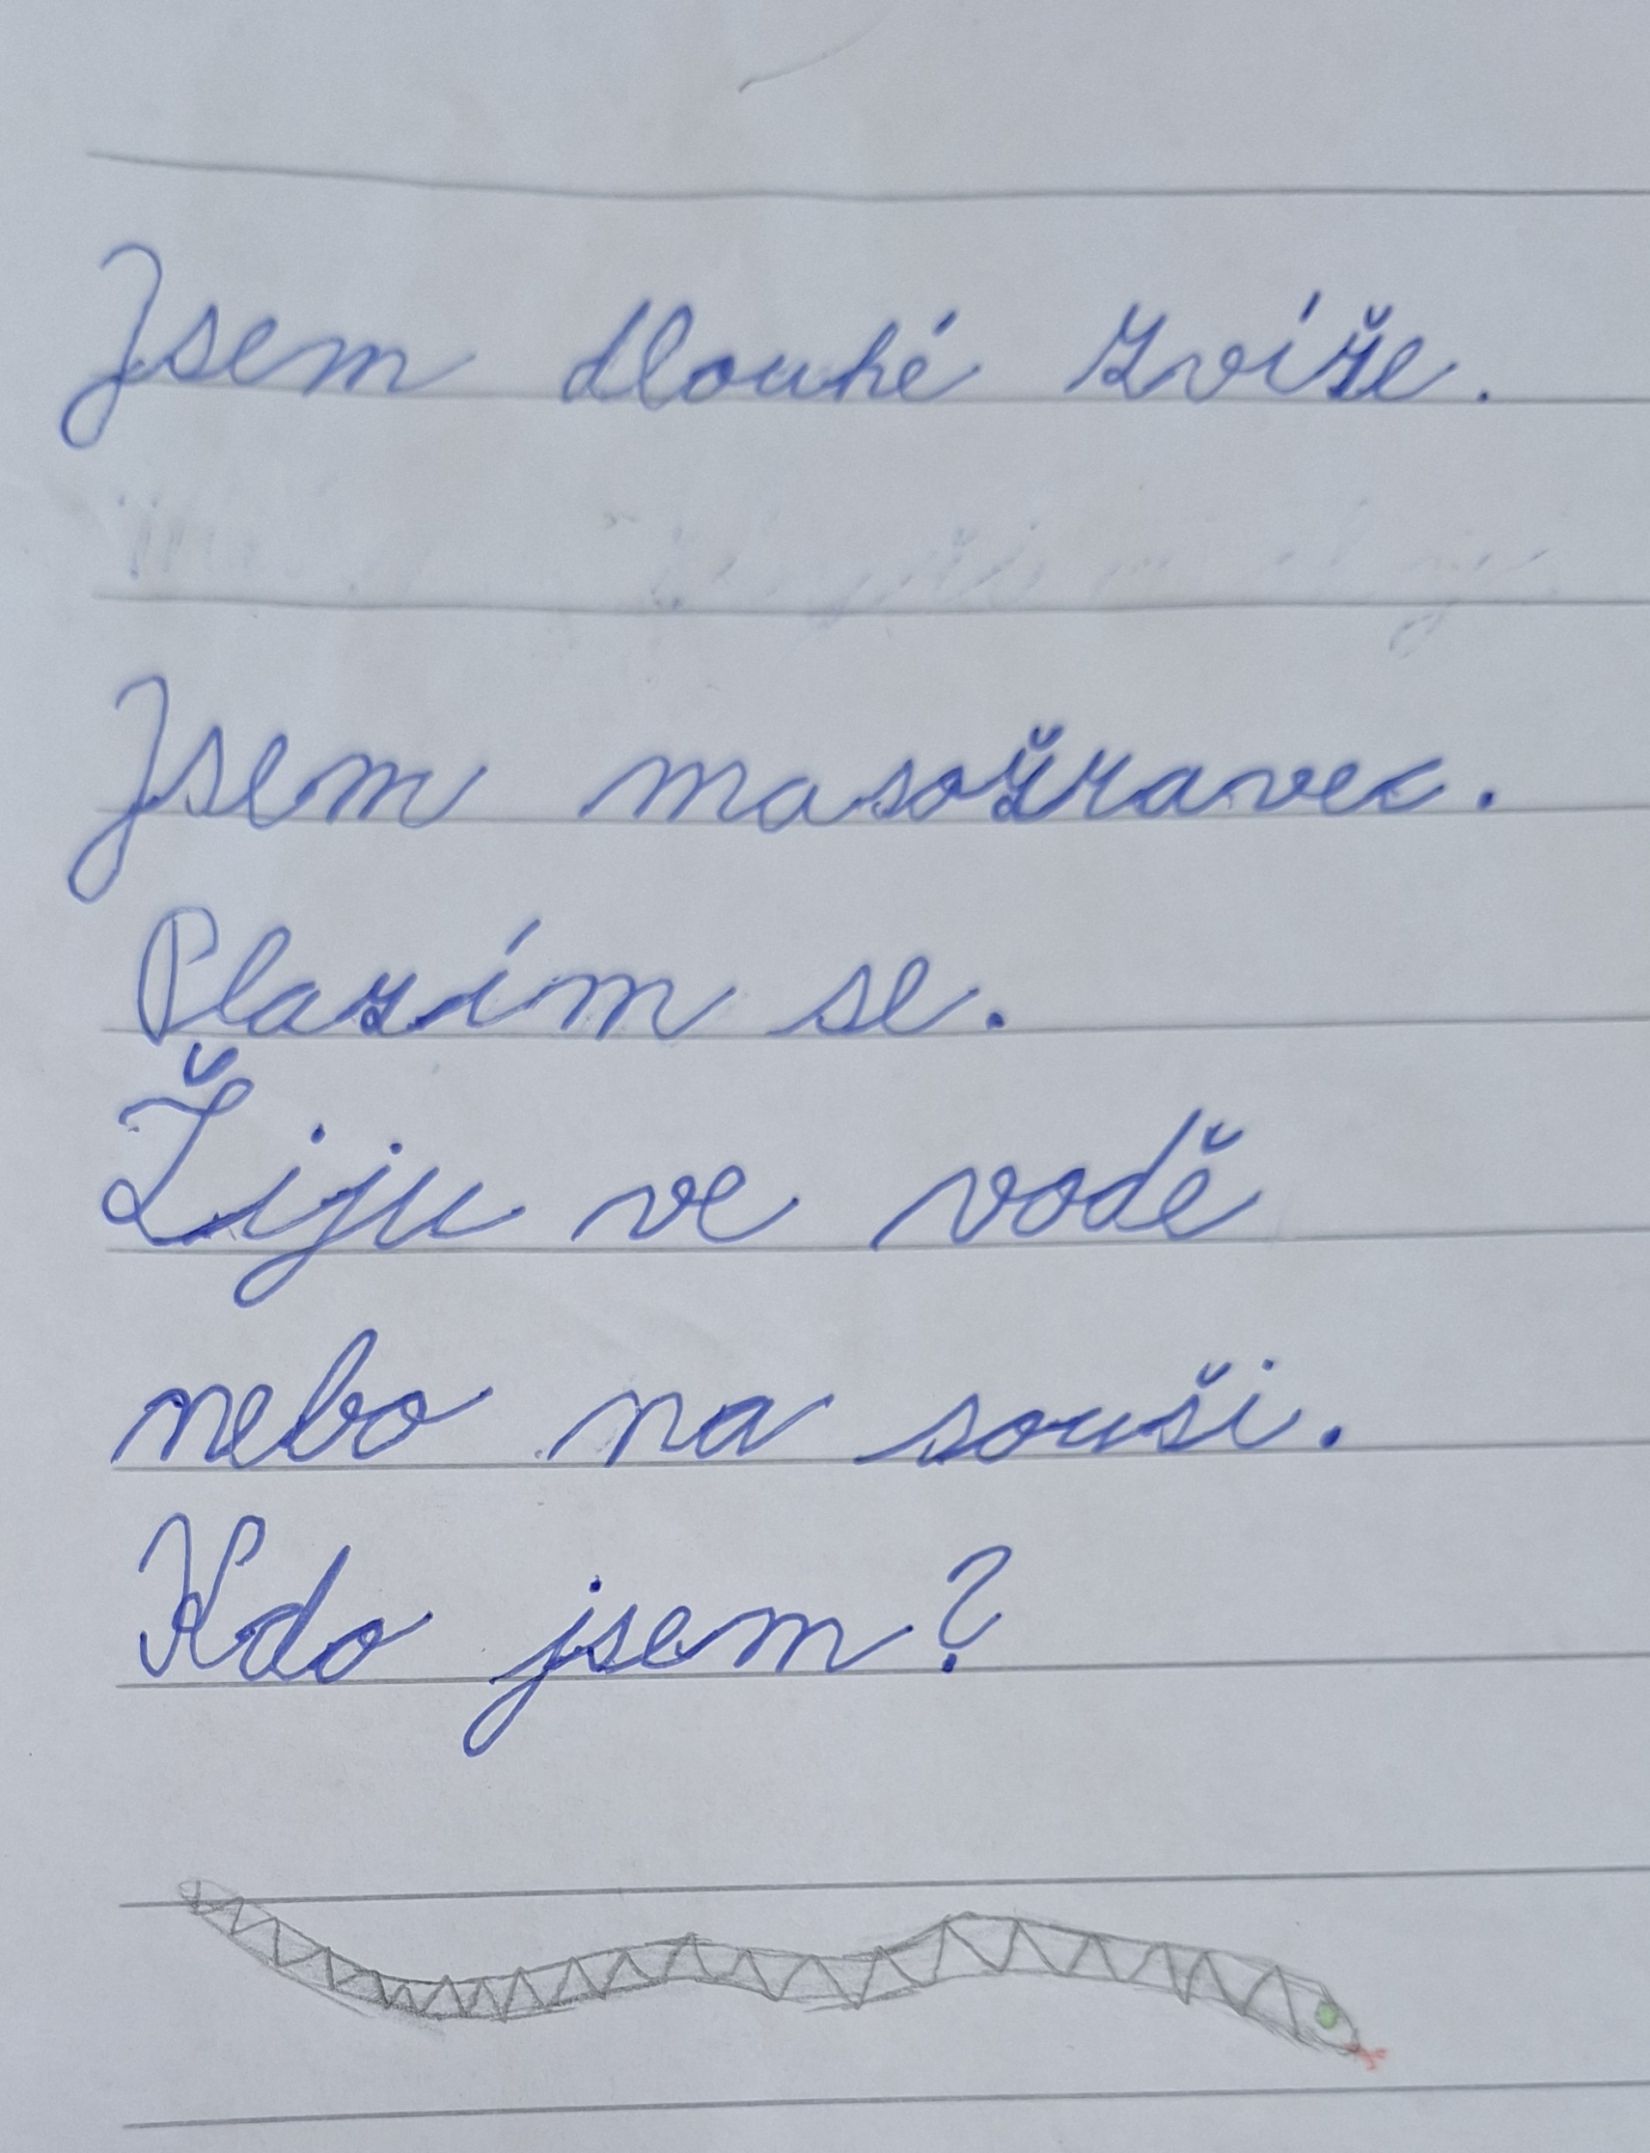 Jsem dlouhé zvíře.
Jsem masožravec.
Plazím se.
Žiju ve vodě
nebo na souši.
Kdo jsem?